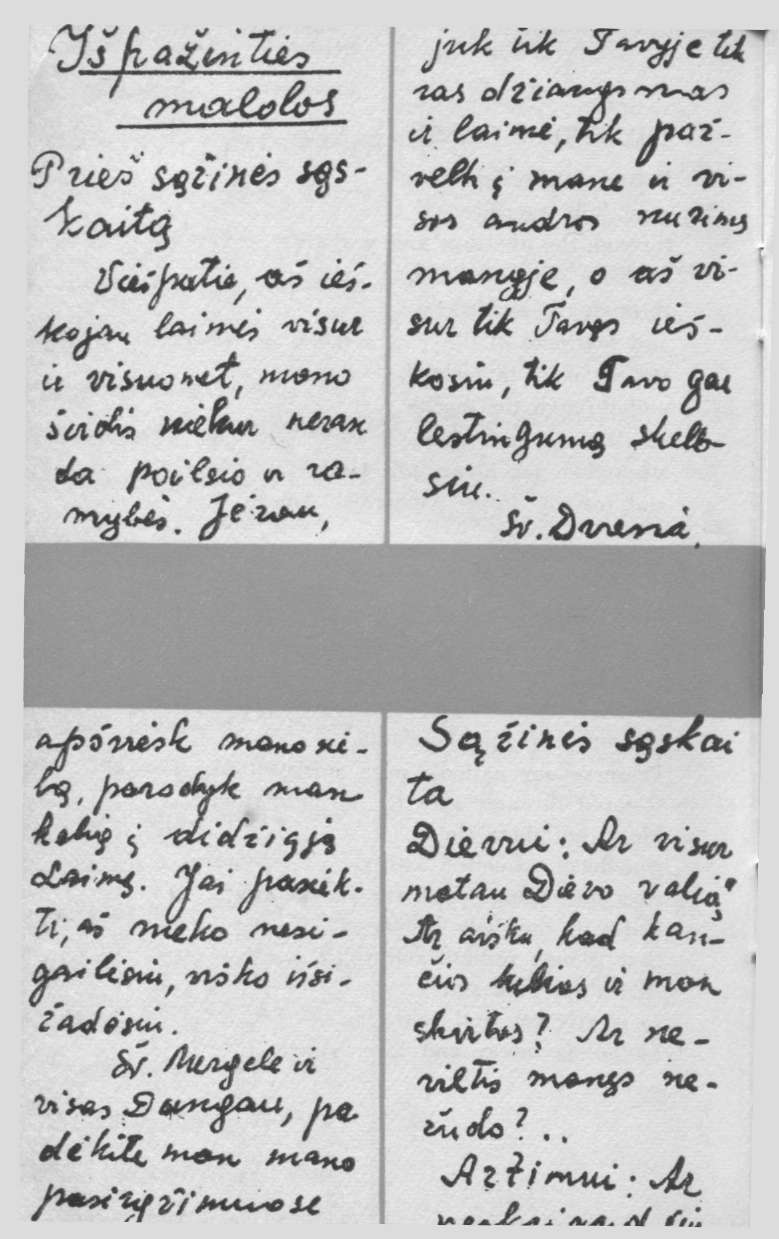 Išpažinties
maldos
Prieš sąžinės sąs-
kaitą
Viešpatie, aš ieš-
kojau laimės visur
ir visuomet, mano
širdis niekur neran
da poilsio ir ra-
mybės. Jėzau,
juk tik Tavyje tik
ras džiaugsmas
ir laimė, tik paž-
velk į mane ir vi-
sos audros nurims
manyje, o aš vi-
sur tik Tavęs ieš-
kosiu, tik Tavo gai
lestingumą skelb-
siu.
Šv. Dvasia,
apšviesk mano sie-
lą, parodyk man
kelią į didžiąją
Laimę. Jai pasiek-
ti, aš nieko nesi-
gailėsiu, visko išsi-
žadėsiu.
Šv. Mergele ir
visas Dangau, pa
dėkite man mano
pasiryžimuose
Sąžinės sąskai
ta
Dievui: Ar visur
matau Dievo valią?
Ar aišku, kad kan-
čios kelias ir man
skirtas? Ar ne-
viltis manęs ne-
žudo?..
Artimui: Ar